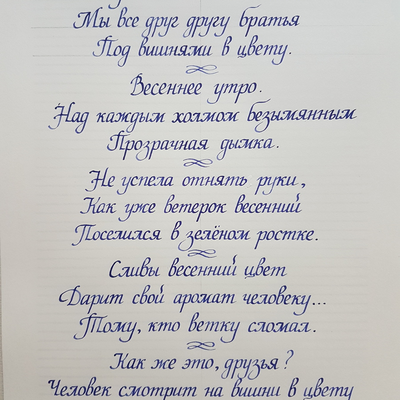 Мы все друг другу братья
Под вишнями в цвету.
Весеннее утро.
Над каждым холмом безымянным
Прозрачная дымка.
Не успела отнять руки,
Как уже ветерок весенний
Поселился в зелёном ростке.
Сливы весенний цвет
Дарит свой аромат человеку...
Тому, кто ветку сломал.
Как же это, друзья?
Человек смотрит на вишни в цвету